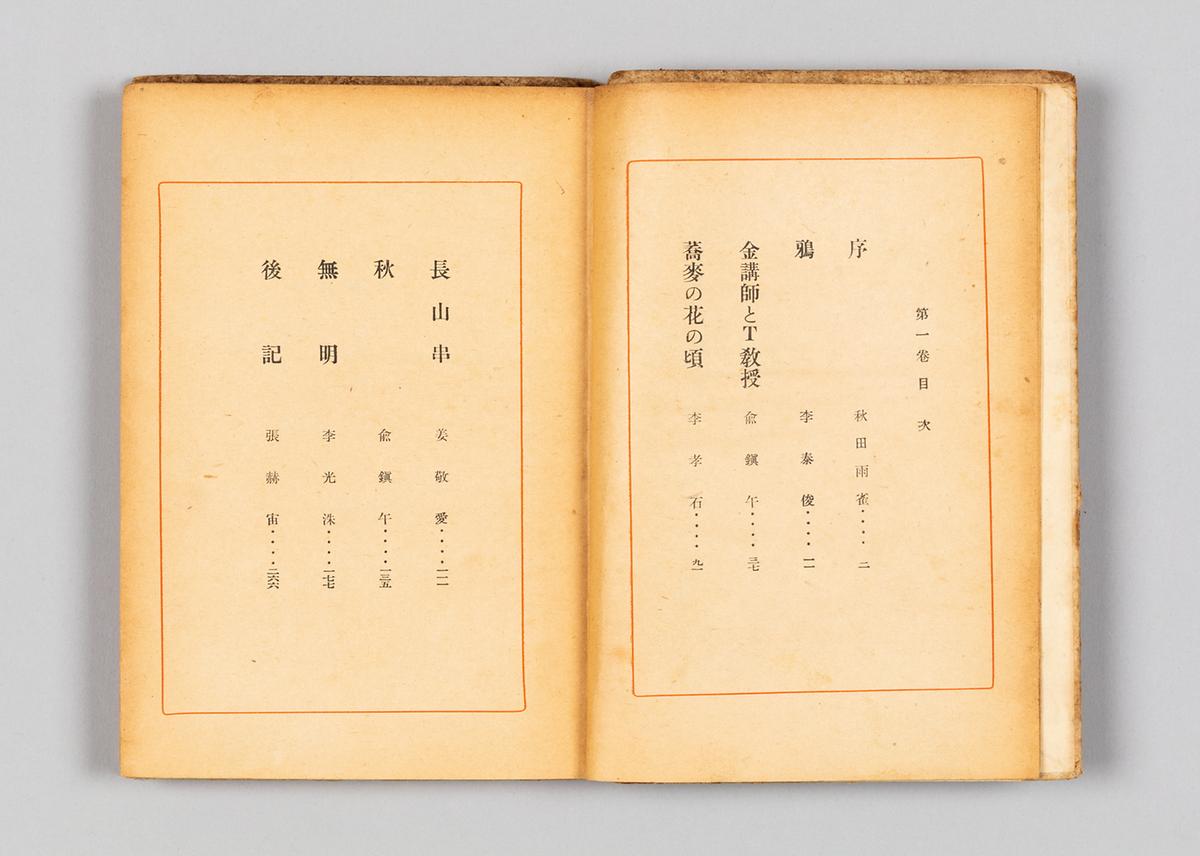 第一卷目次
序 秋田雨雀・・・・二
鴉 李泰俊・・・・一一
金講師とT敎授 兪鎭午・・・・三七
蕎麥の花の頃 李孝石・・・・九一
長山串 姜敬愛・・・・一一一
秋 兪鎭午・・・・一三五
無明 李光洙・・・・一七七
後記 張赫宙・・・・二六六